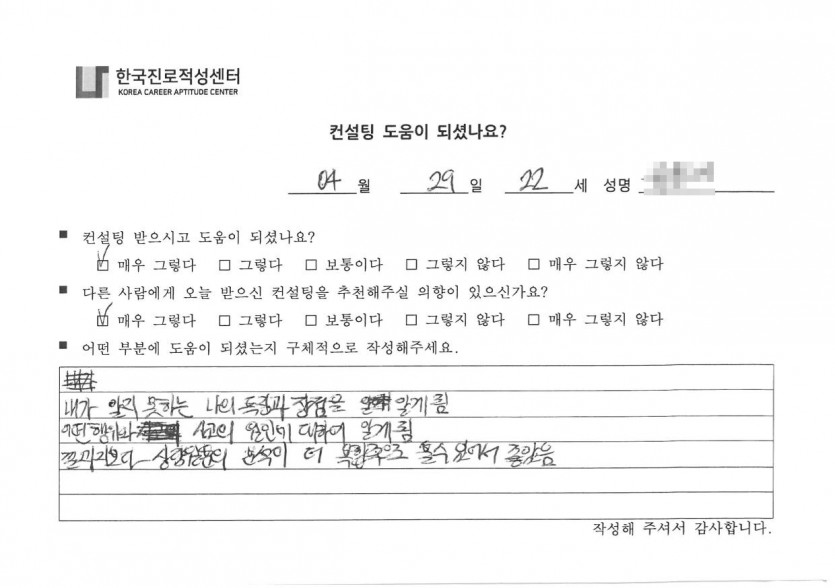 한국진로적성센터
KOREA CAREER APTITUDE CENTER
컨설팅 도움이 되셨나요?
04 월 29 일 22 세 성명
■ 컨설팅 받으시고 도움이 되셨나요?
☑ 매우 그렇다 □ 그렇다 □ 보통이다 □ 그렇지 않다 □ 매우 그렇지 않다
■ 다른 사람에게 오늘 받으신 컨설팅을 추천해주실 의향이 있으신가요?
☑ 매우 그렇다 □ 그렇다 □ 보통이다 □ 그렇지 않다 □ 매우 그렇지 않다
■ 어떤 부분에 도움이 되셨는지 구체적으로 작성해주세요.
내가 알지 못하는 나의 특징과 장점을 알게 됨
어떤 행위나 사고의 원인에 대하여 알게 됨
분석이 더 복합적으로 볼 수 있어서 좋았음
작성해 주셔서 감사합니다.